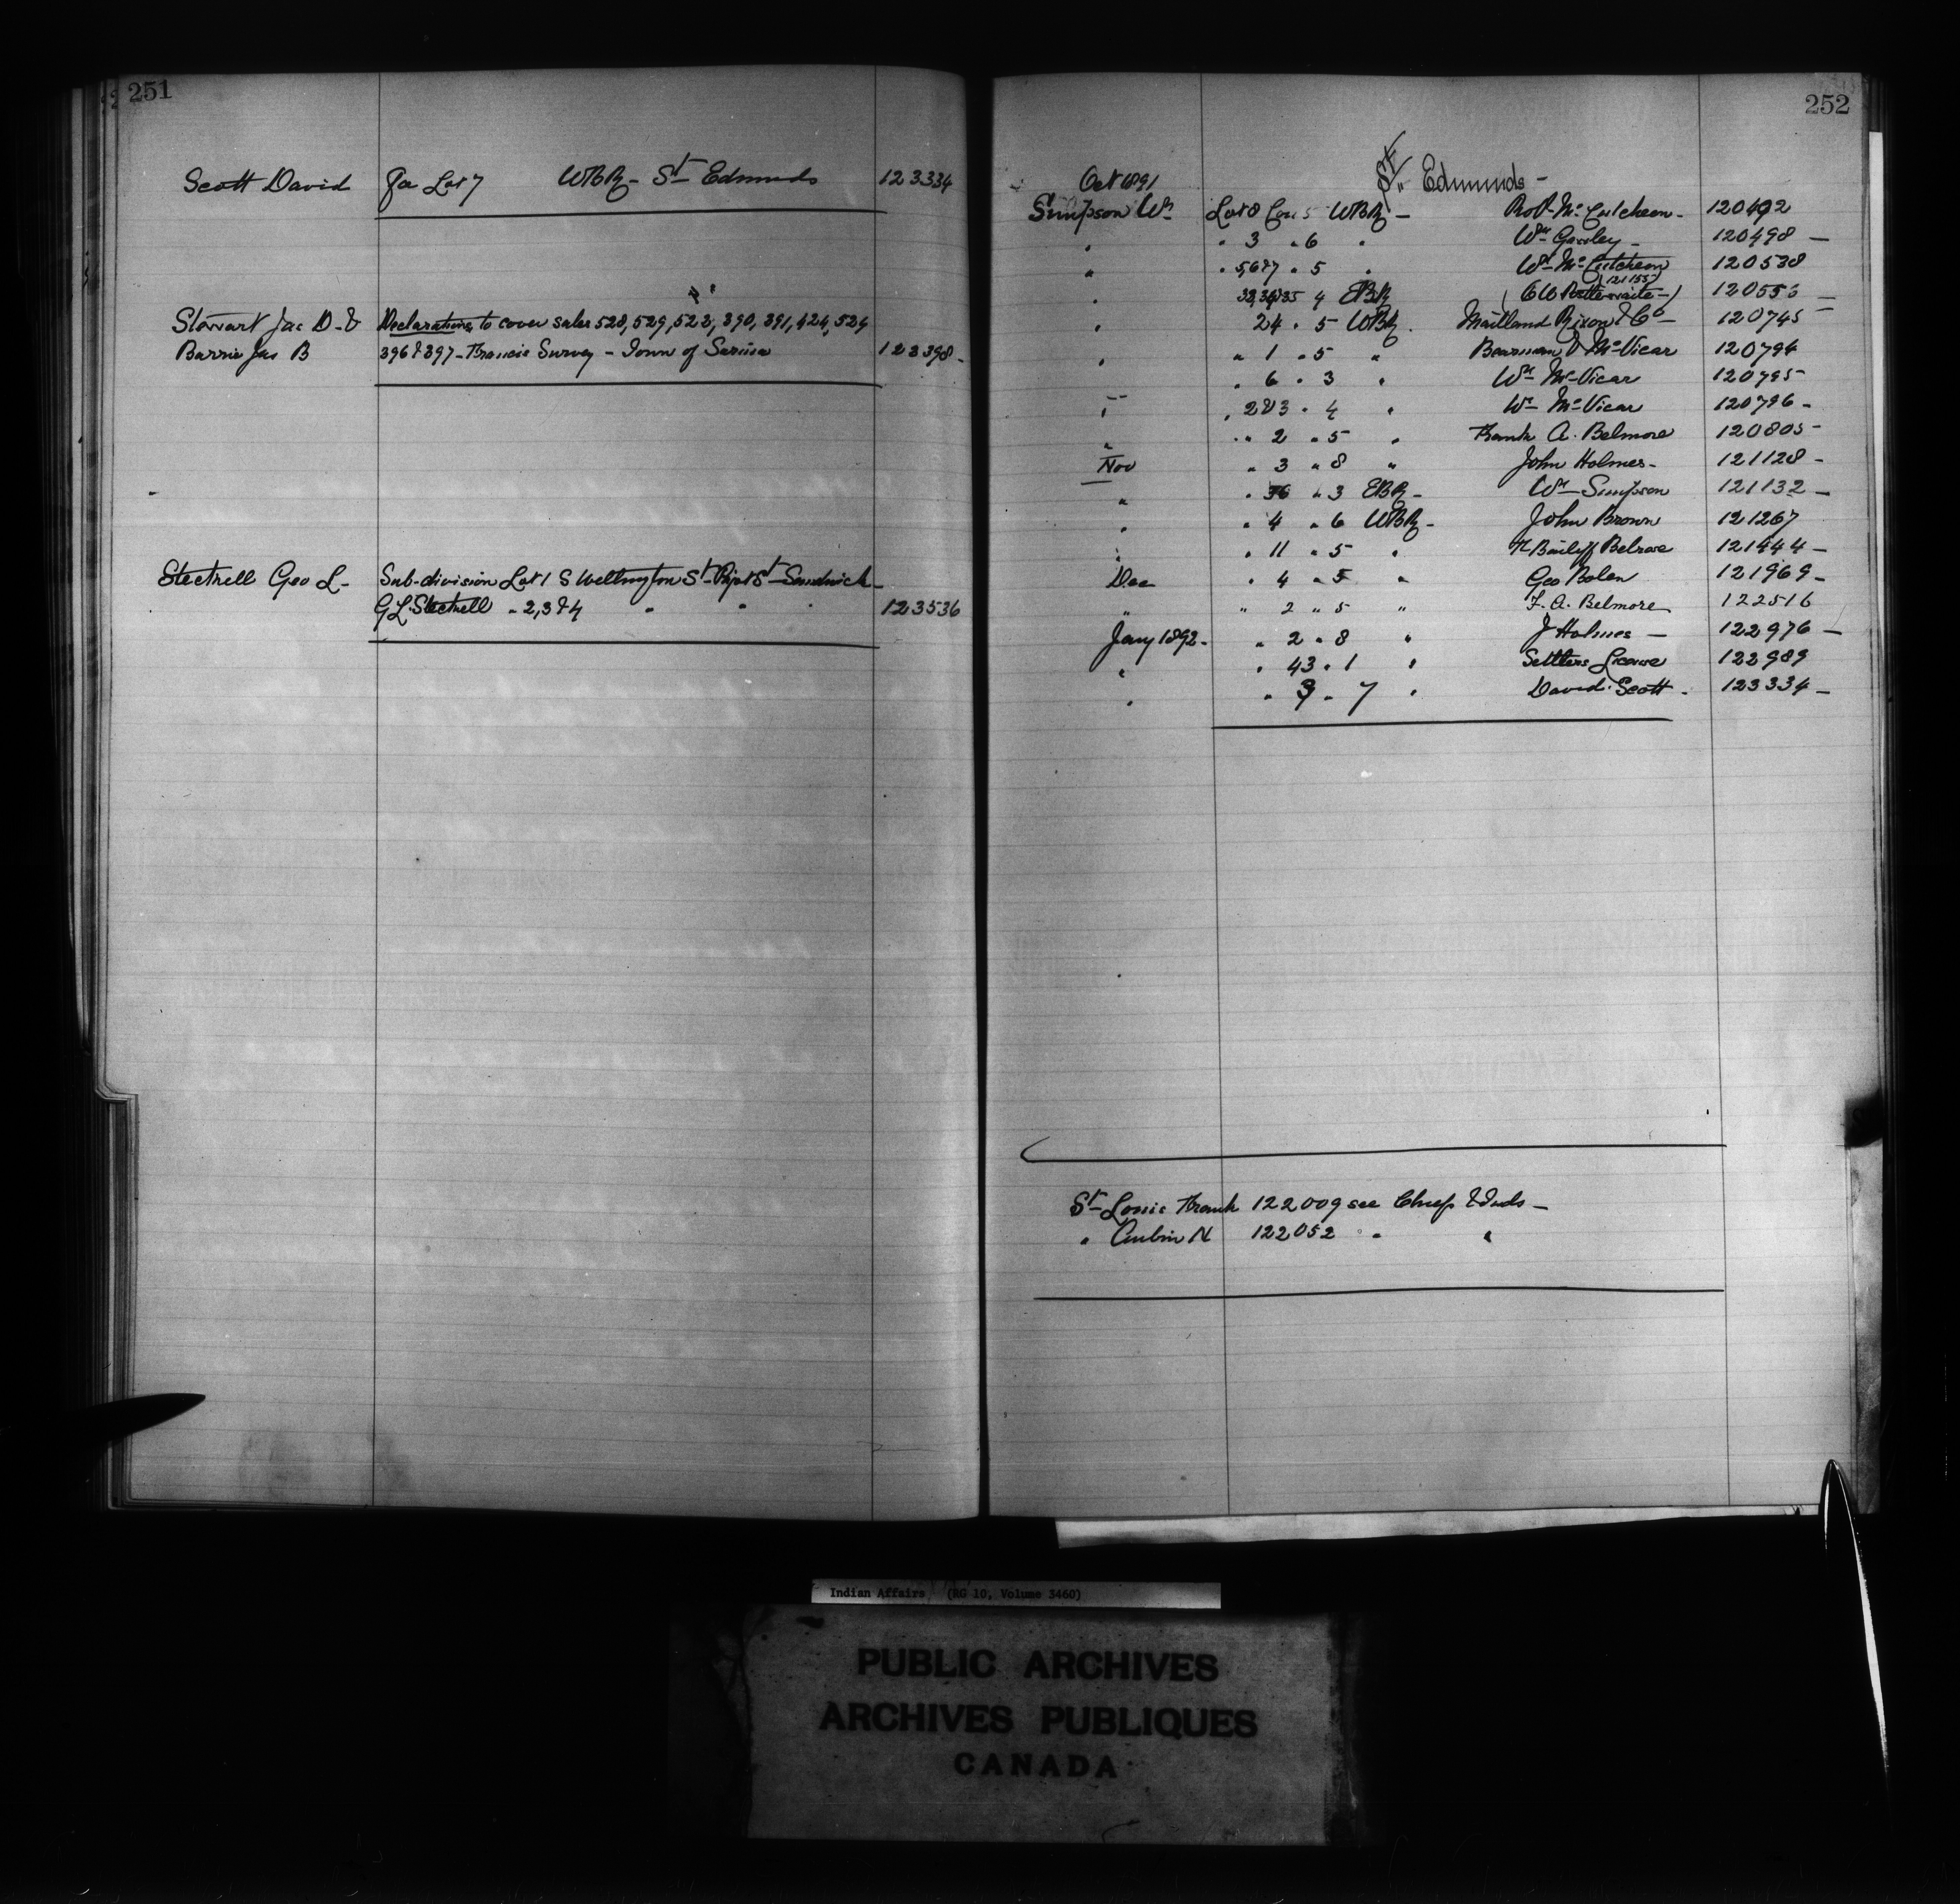 251
Scott David Lot 7 WBR - St Edmunds 123334
Stewart Jas D. &
Declarations to cover sales 528, 529, 522, 390, 391, 424, 524
Barrie Jas B 396 & 397 - Francis Survey - Town of Sarnia 123398 -
Geo L - Sub-division Lot 1 S Wellington St Sandwich -
G L " 2, 3 & 4 " " " 123536
252
Oct 1891 St. Edmunds -
Simpson Wm Lot 8 Con 5 WBR - Robt McCutcheon - 120492
" " 3 " 6 " Wm - 120498 -
" " 5, 6 & 7 " 5 " Wm McCutcheon 120538
(121155)
" 33, 34 & 35 4 EBR (C W -) 120556 -
" 24 " 5 WBR. Maitland Rixon & Co - 120745 -
" " 1 " 5 " Bearman & McVicar 120794
" 6 " 3 " Wm McVicar 120795
" " 2 & 3 " 4 " Wm McVicar 120796 -
" " 2 " 5 " Frank A. Belmore 120805 -
Nov " 3 " 8 " John Holmes - 121128 -
" " 36 " 3 EBR - Wm Simpson 121132 -
" " 4 " 6 WBR - John Brown 121267
" " 11 " 5 " 121444 -
Dec " 4 " 5 " Geo Bolen 121969 -
" " 2 " 5 " F. A. Belmore 122516
Jany 1892 - " 2 " 8 " J Holmes - 122976 -
" " 43 " 1 " Settlers License 122989
" " 9 " 7 " David Scott - 123334 -
St Louis Frank 122009 see Chiefs & Inds -
" N 122052 " "
Indian Affairs (RG 10, Volume 3460)
PUBLIC ARCHIVES
ARCHIVES PUBLIQUES
CANADA